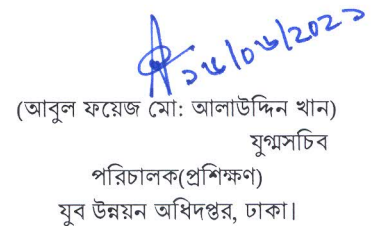 ১৫/০৬/২০২১
(আবুল ফয়েজ মো: আলাউদ্দিন খান)
যুগ্মসচিব
পরিচালক(প্রশিক্ষণ)
যুব উন্নয়ন অধিদপ্তর, ঢাকা।